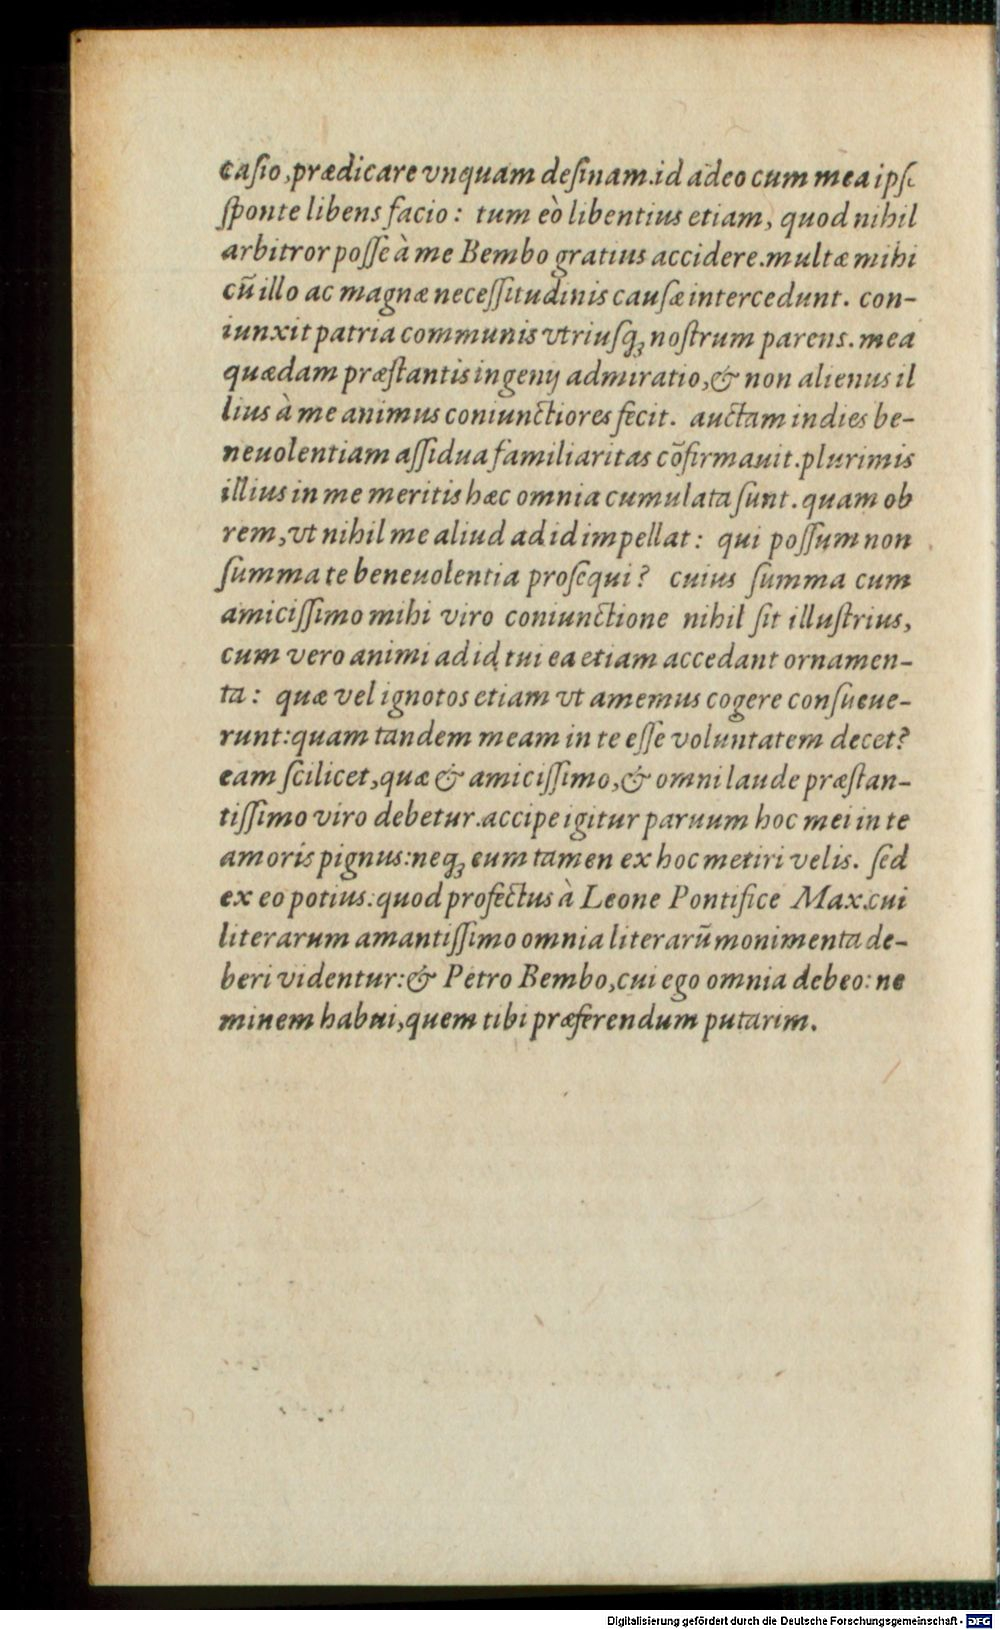 casio, prædicare vnquam desinam. id adeo cum mea ipse
sponte libens facio : tum eò libentius etiam, quod nihil
arbitror posse à me Bembo gratius accidere. multæ mihi
cū illo ac magnæ necessitudinis causæ intercedunt. con-
iunxit patria communis vtriusq; nostrum parens. mea
quædam præstantis ingenij admiratio, & non alienus il
lius à me animus coniunctiores fecit. auctam indies be-
neuolentiam assidua familiaritas cōfirmauit. plurimis
illius in me meritis hæc omnia cumulata sunt. quam ob
rem, vt nihil me aliud ad id impellat : qui possum non
summa te beneuolentia prosequi ? cuius summa cum
amicissimo mihi viro coniunctione nihil sit illustrius,
cum vero animi ad id tui ea etiam accedant ornamen-
ta : quæ vel ignotos etiam vt amemus cogere consueue-
runt: quam tandem meam in te esse voluntatem decet?
eam scilicet, quæ & amicissimo, & omni laude præstan-
tissimo viro debetur. accipe igitur paruum hoc mei in te
amoris pignus: neq; eum tamen ex hoc metiri velis. sed
ex eo potius: quod profectus à Leone Pontifice Max. cui
literarum amantissimo omnia literarū monimenta de-
beri videntur: & Petro Bembo, cui ego omnia debeo: ne
minem habui, quem tibi præferendum putarim.
Digitalisierung gefördert durch die Deutsche Forschungsgemeinschaft - DFG